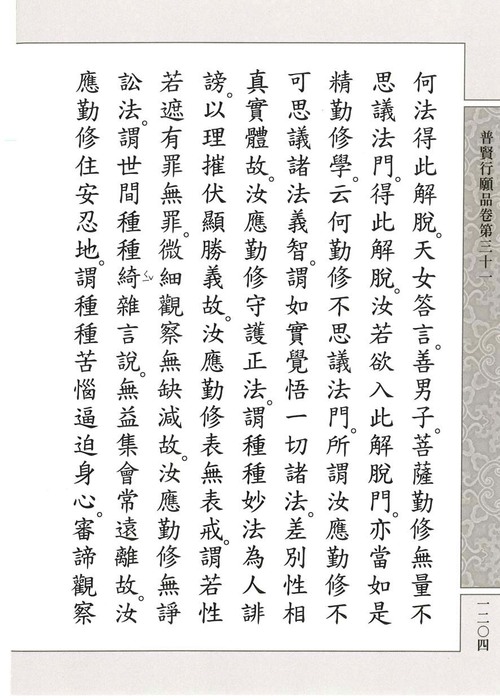 普賢行願品卷第三十一
何法得此解脫。天女答言。善男子。菩薩勤修無量不
思議法門。得此解脫。汝若欲入此解脫門。亦當如是
精勤修學。云何勤修不思議法門。所謂汝應勤修不
可思議諸法義智。謂如實覺悟一切諸法。差別性相
真實體故。汝應勤修守護正法。謂種種妙法為人誹
謗。以理摧伏顯勝義故。汝應勤修表無表戒。謂若性
若遮有罪無罪。微細觀察無缺減故。汝應勤修無諍
訟法。謂世間種種綺雜言說。無益集會常遠離故。汝
應勤修住安忍地。謂種種苦惱逼迫身心。審諦觀察
一一二〇四